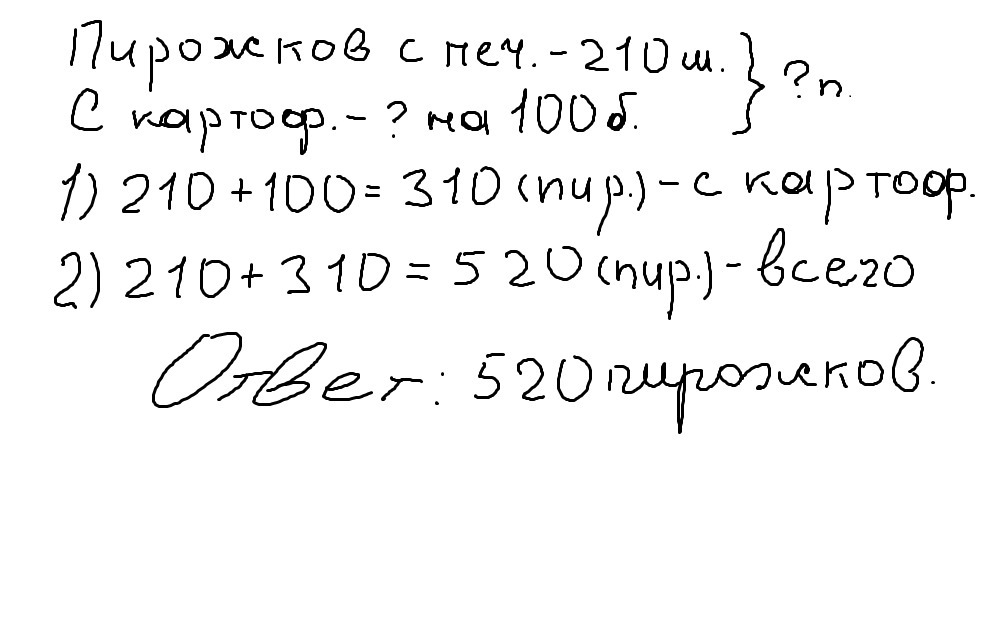 Пирожсков с печ. - 210 ш. } ? п.
С картоф. - ? на 100 б.
1) 210 + 100 = 310 (пир.) - с картоф.
2) 210 + 310 = 520 (пир.) - всего
Ответ: 520 пирожсков.